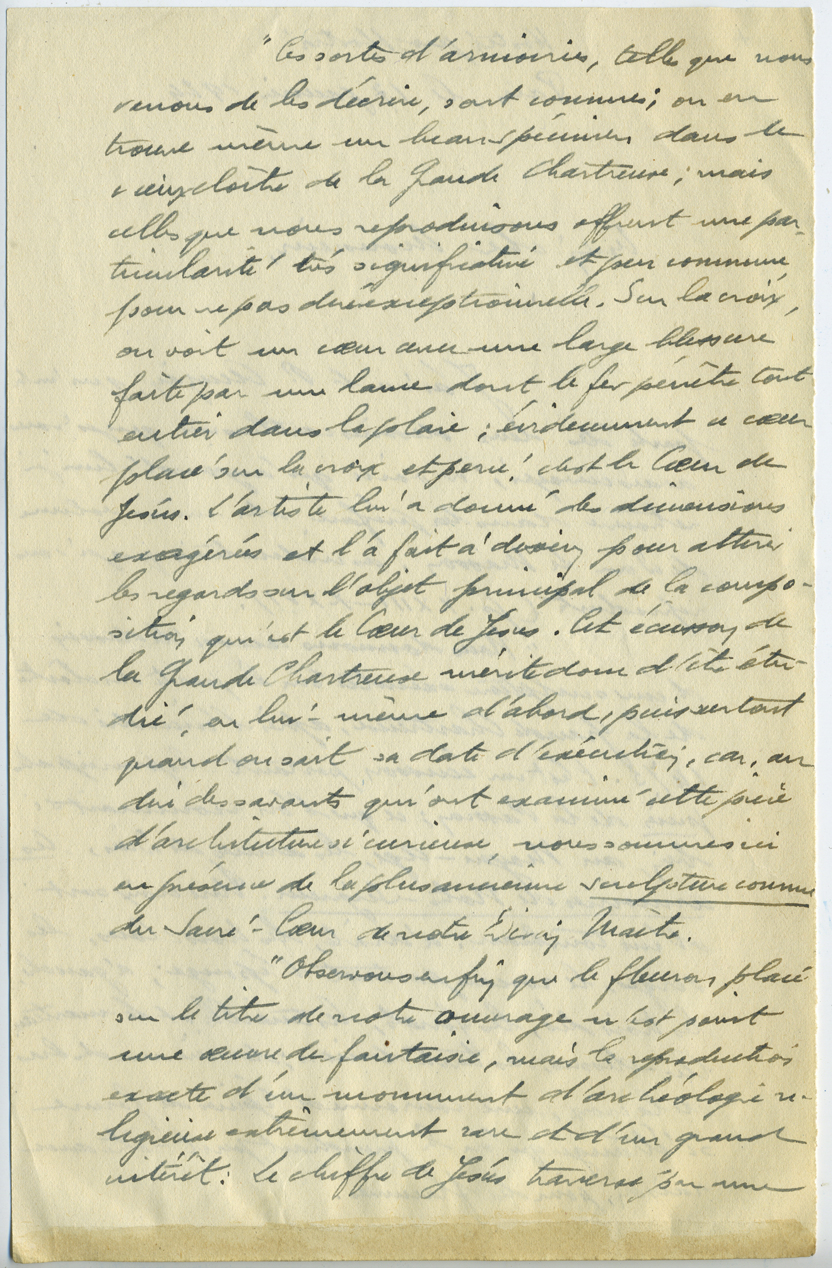 "Ces sortes d'armoiries, telles que nous
venons de les décrire, sont connues; on en
trouve même un beau spécimen dans le
vieux cloître de la Grande Chartreuse; mais
celles que nous reproduisons offrent une par-
ticularité très significative et peu commune
pour ne pas dire exceptionnelle. Sur la croix,
on voit un cœur avec une large blessure
faite par une lame dont le fer pénètre tout
entier dans la plaie; évidemment ce cœur
placé sur la croix et percé, c'est le Cœur de
Jésus. L'artiste lui a donné des dimensions
exagérées et l'a fait à dessein pour attirer
les regards sur l'objet principal de la compo-
sition, qui est le Cœur de Jésus. Cet écusson de
la Grande Chartreuse mérite donc d'être étu-
dié, en lui-même d'abord, puis surtout
quand on sait sa date d'exécution, car, au
dire des savants qui ont examiné cette pièce
d'architecture si curieuse, nous sommes ici
en présence de la plus ancienne sculpture connue
du Sacré-Cœur de notre Divin Maître.
"Observons enfin que le fleuron placé
sur le titre de notre ouvrage n'est point
une œuvre de fantaisie, mais la reproduction
exacte d'un monument d'archéologie re-
ligieuse extrêmement rare et d'un grand
intérêt: Le chiffre de Jésus traversé par une